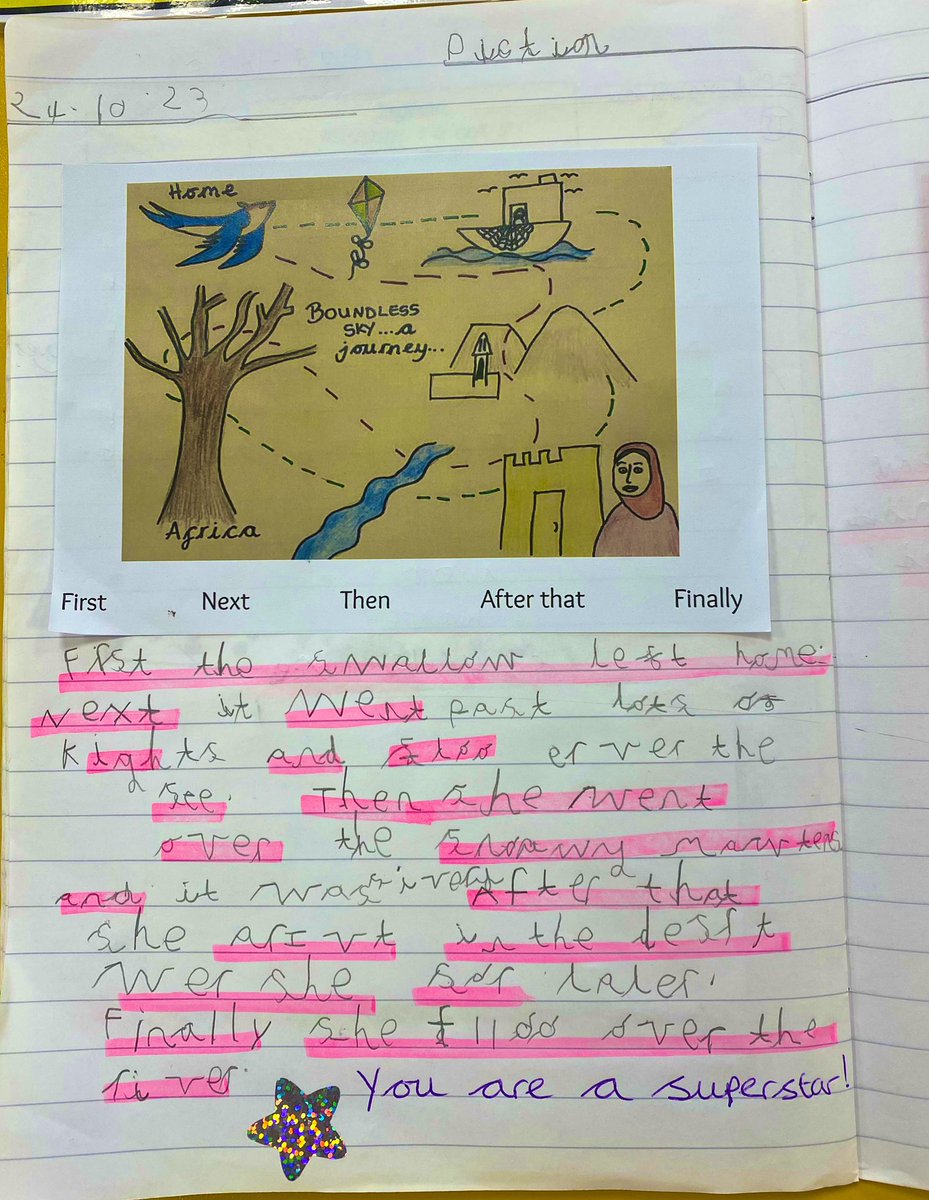 Diction
24.10.23
Home
BOUNDLESS
SKY...a
journey...
Africa
First Next Then After that Finally
First the swallow left home.
Next it went past lots of
kights and floo er ver the
see. Then she went
over the snowy
and it was After that
she arivt in the desft
wer she sor later.
Finally she floo over the
river.
You are a superstar!